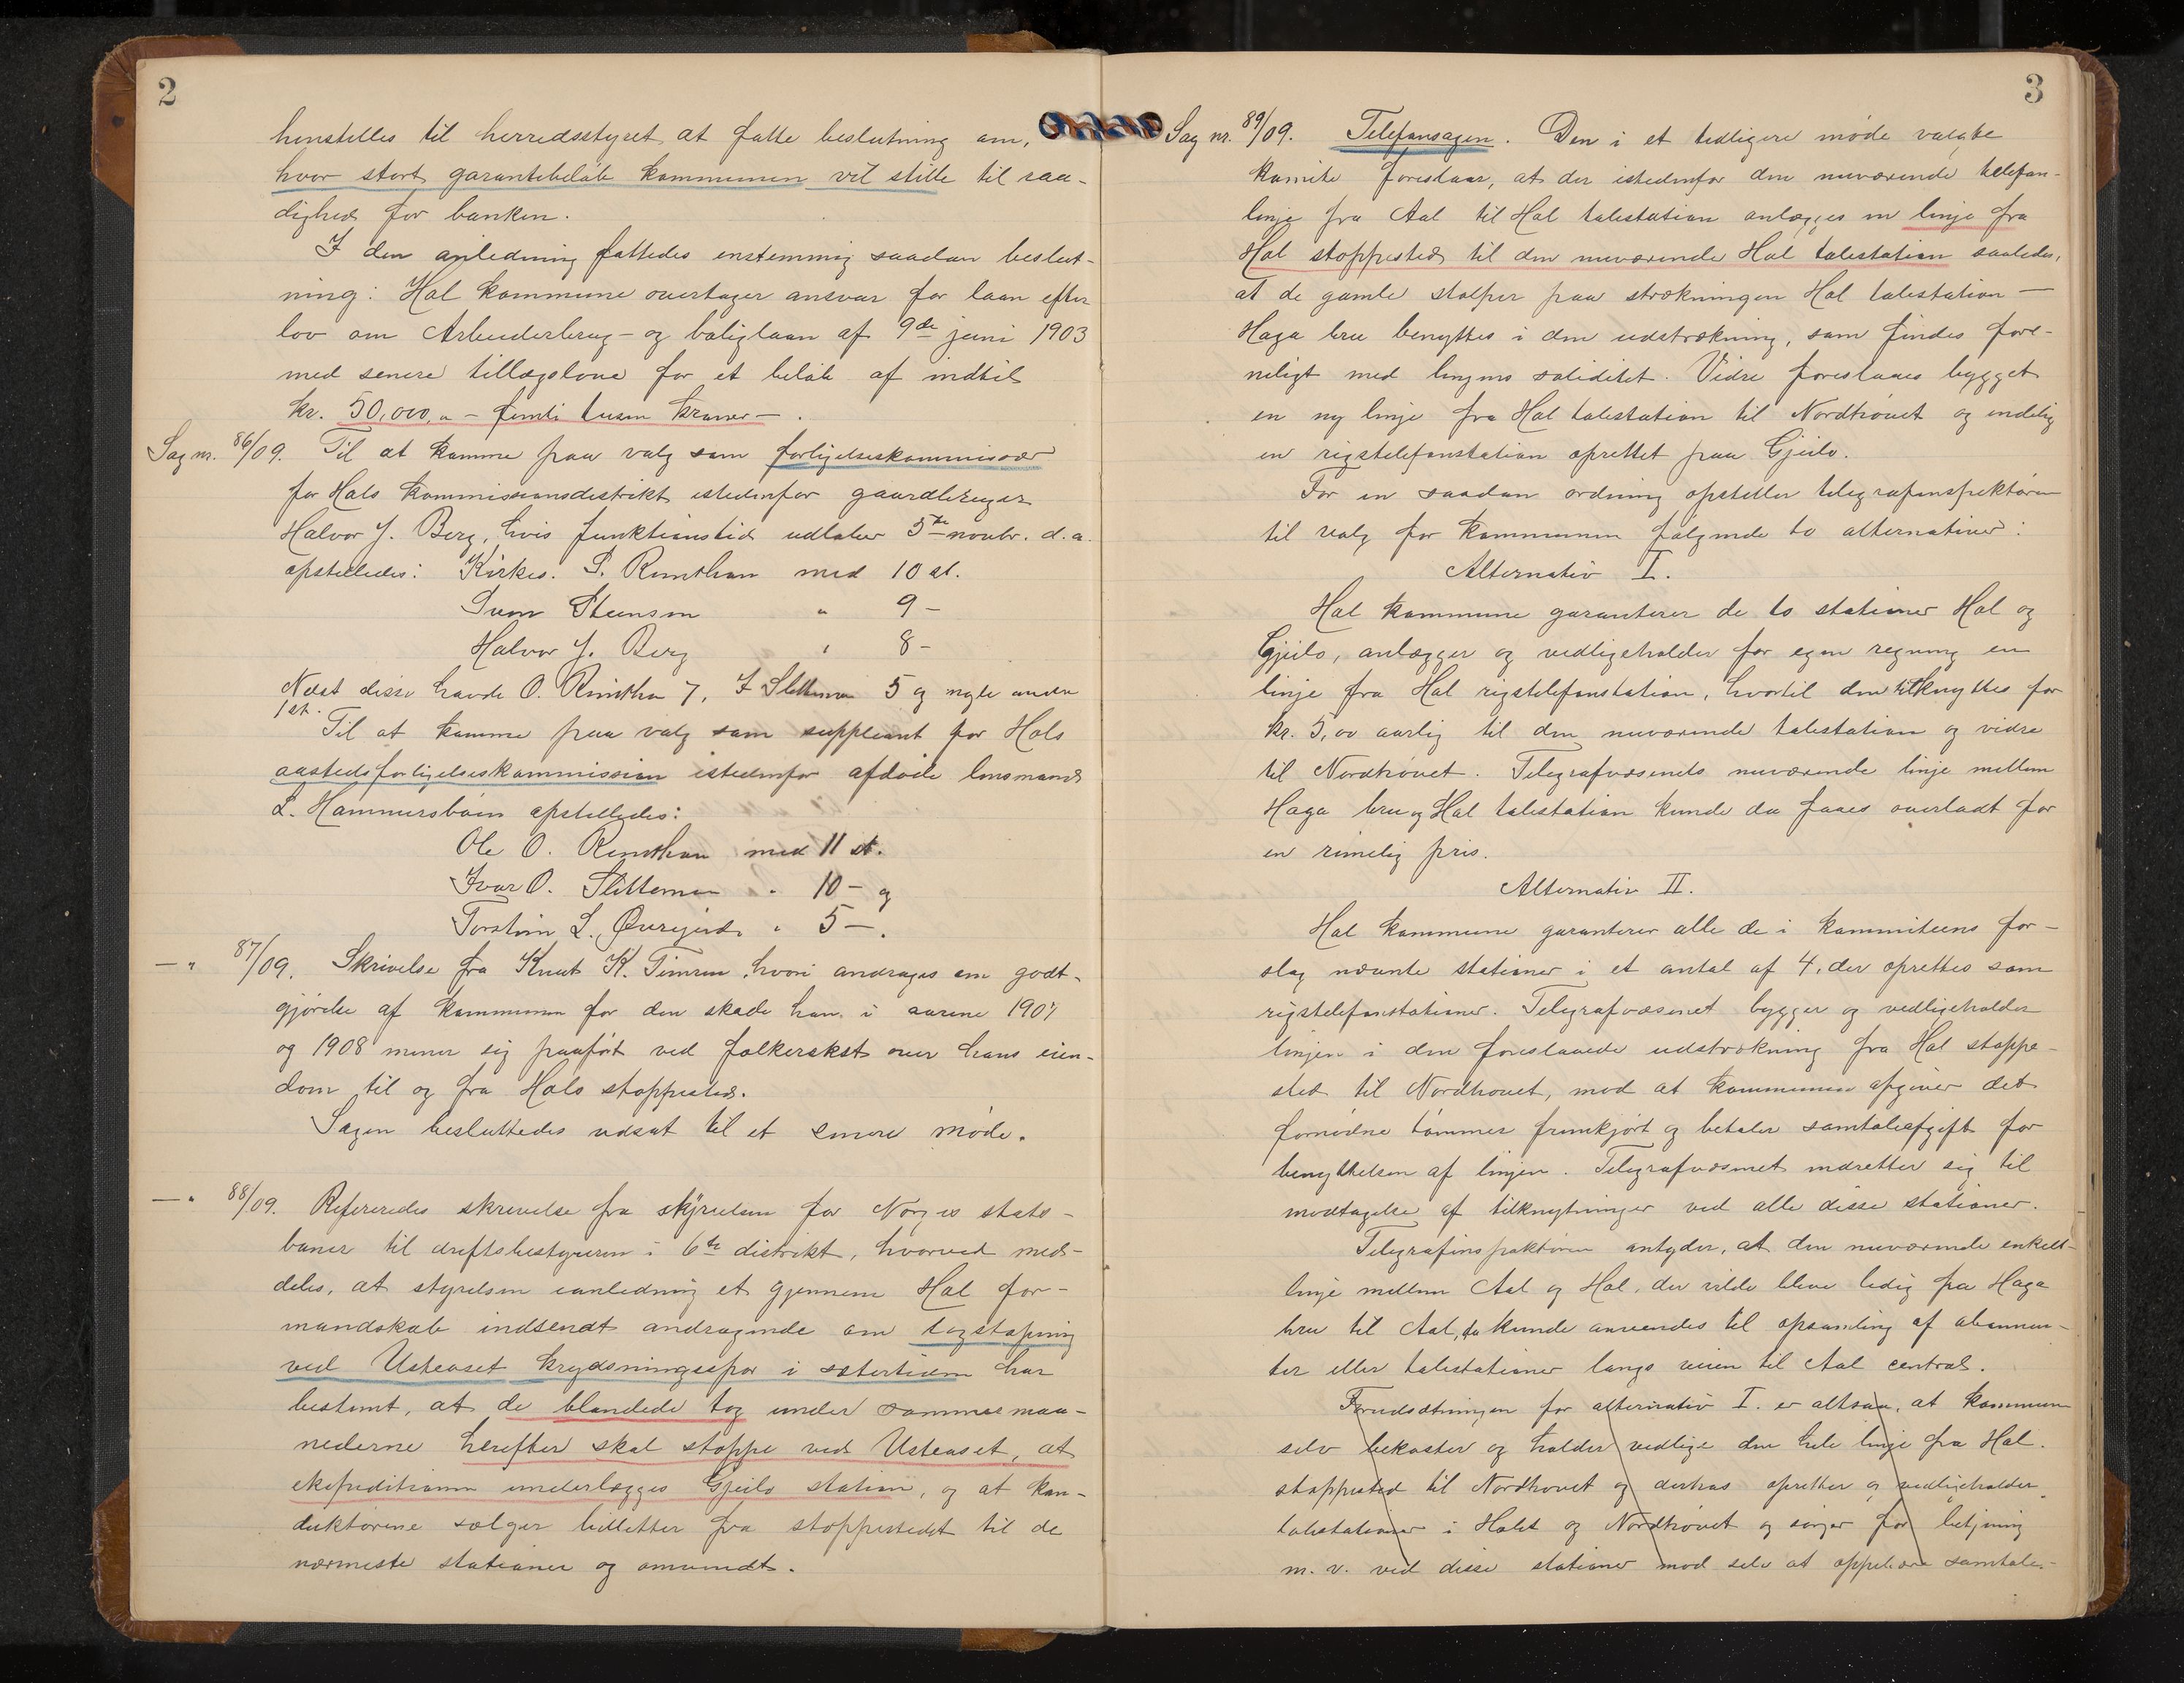 2
henstilles til herredsstyret at fatte beslutning om,
hvor stort garantibeløb kommunen vil stille til raa-
dighed for banken.
I den anledning fattedes enstemmig saadan beslut-
ning: Hol kommune overtager ansvar for laan efter
lov om Arbeiderbrug- og boliglaan af 9de juni 1903
med senere tillægslove for et beløb af indtil
kr. 50,000,00 - femti tusen kroner -.
Sag nr. 86/09. Til at komme paa valg som forligelseskommissær
for Hols kommissionsdistrikt istedenfor gaardbruger
Halvor J. Berg, hvis funktionstid udløber 5te novbr. d.a.
opstilledes: Kirkes. S. Rensthun med 10 st.
Sven Steenson " 9 -
Halvor J. Berg " 8 -
Næst disse havde O. Rensthun 7, I Slettemoen 5 og nogle andre
1 st.
Til at komme paa valg som suppleant for Hols
aastedsforligelseskommission istedenfor afdøde lensmand
L. Hammersbøen opstilledes:
Ole O. Rensthun med 11 st.
Ivar O. Slettemoen " 10 - og
Torstein L. Øvregjerde " 5 -.
— " 87/09. Skrivelse fra Knut K. Timren, hvori andrages om godt-
gjørelse af kommunen for den skade han i aarene 1907
og 1908 mener sig paaført ved folkerækst over hans eien-
dom til og fra Hols stoppested.
Sagen besluttedes udsat til et senere møde.
— " 88/09. Refereredes skrivelse fra styrelsen for Norges stats-
baner til driftsbestyreren i 6te distrikt, hvorved med-
deles, at styrelsen ianledning et gjennem Hol for-
mandskab indsendt andragende om togstopning
ved Ustaoset krydsningsspor i sætertiden har
bestemt, at de blandede tog under sommermaa-
nederne herefter skal stoppe ved Ustaoset, at
ekspeditionen underlægges Gjeilo station, og at kon-
duktørerne sælger billetter fra stoppestedet til de
nærmeste stationer og omvendt.
3
Sag nr. 89/09. Telefonsagen. Den i et tidligere møde valgte
komite foreslaar, at der istedenfor den nuværende telefon-
linje fra Aal til Hol talestation anlægges en linje fra
Hol stoppested til den nuværende Hol talestation saaledes,
at de gamle stolper paa strækningen Hol talestation —
Haga bru benyttes i den udstrækning, som findes fore-
neligt med linjens soliditet. Vidre foreslaaes bygget
en ny linje fra Hol talestation til Nordhovet og endelig
en rigstelefonstation oprettet paa Gjeilo.
For en saadan ordning opstiller telegrafinspektøren
til valg for kommunen følgende to alternativer:
Alternativ I.
Hol kommune garanterer de to stationer Hol og
Gjeilo, anlægger og vedligeholder for egen regning en
linje fra Hol rigstelefonstation, hvortil den tilknyttes for
kr. 5,00 aarlig til den nuværende talestation og vidre
til Nordhovet. Telegrafvæsenets nuværende linje mellem
Haga bru og Hol talestation kunde da faaes overladt for
en rimelig pris.
Alternativ II.
Hol kommune garanterer alle de i kommiteens for-
slag nævnte stationer i et antal af 4, der oprettes som
rigstelefonstationer. Telegrafvæsenet bygger og vedligeholder
linjen i den foreslaaede udstrækning fra Hol stoppe-
sted til Nordhovet, mod at kommunen afgiver det
fornødne tømmer fremkjørt og betaler samtaleafgift for
benyttelsen af linjen. Telegrafvæsenet indretter sig til
modtagelse af tilknytninger ved alle disse stationer.
Telegrafinspektøren antyder, at den nuværende enkelt-
linje mellem Aal og Hol, der vilde blive ledig fra Haga
bru til Aal, da kunde anvendes til opsamling af abonnen-
ter eller talestationer langs veien til Aal central.
Forudsætningen for alternativ I. er altsaa, at kommunen
selv bekoster og holder vedlige den hele linje fra Hol
stoppested til Nordhovet og derhos opretter og vedligeholder
talestationer i Holet og Nordhovet og sørger for betjening
m.v. ved disse stationer mod selv at oppebære samtale-